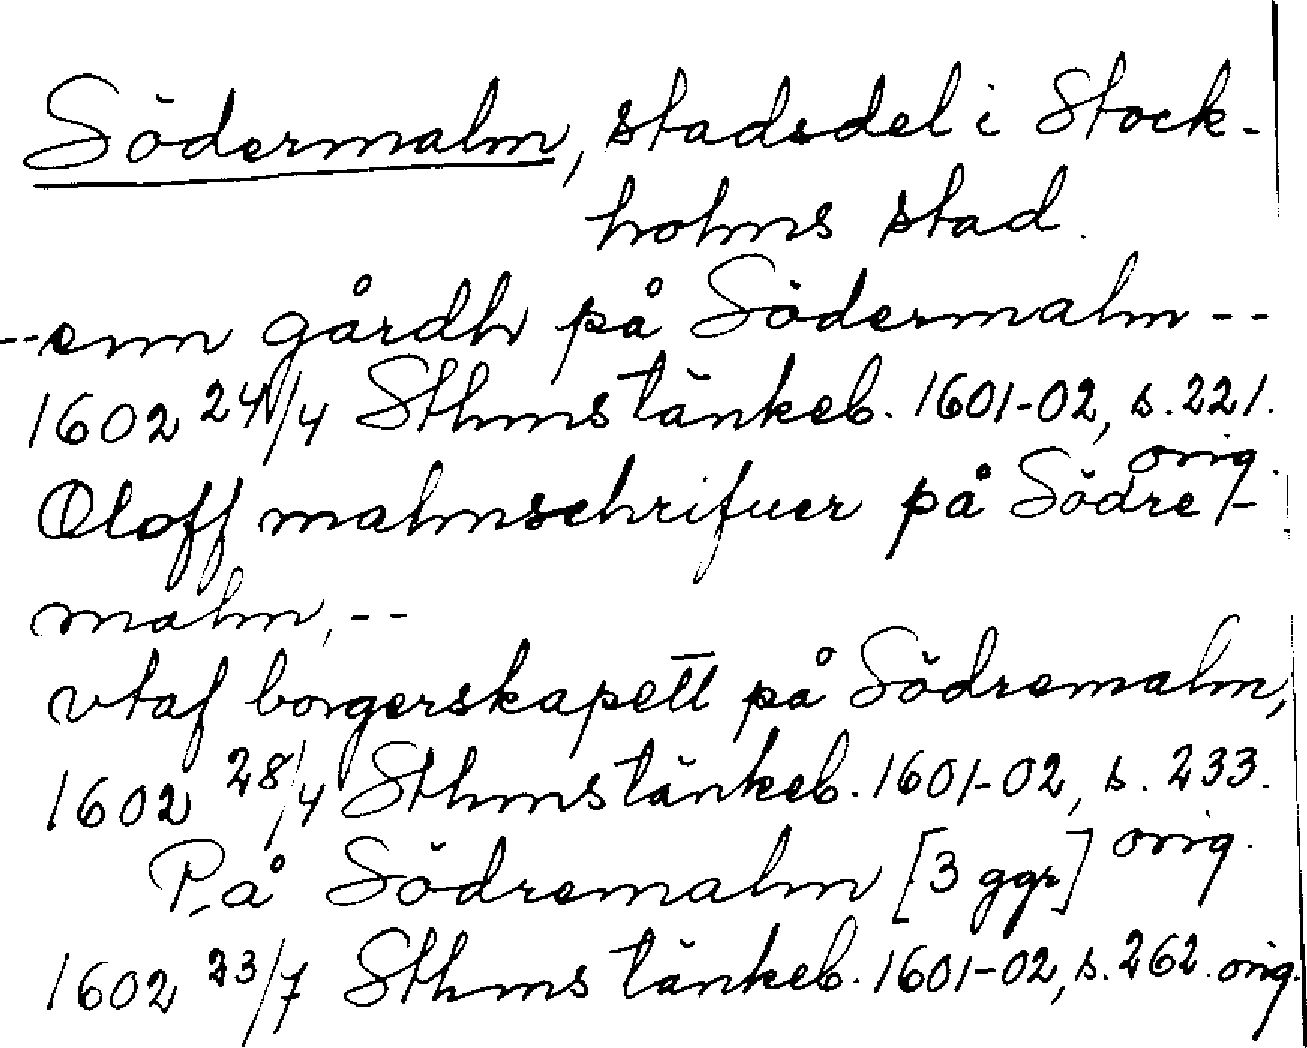 Södermalm, stadsdel i Stock-
holms stad.
-- enn gårdh på Södermalm --
1602 24/4 Sthms tänkeb. 1601-02, s. 221.
orig.
Oloff malmschrifuer på Södre/-
malm, --
vtaf borgerskapett på Södremalm,
1602 28/4 Sthms tänkeb. 1601-02, s. 233.
orig.
På Södremalm [3 ggr]
1602 23/7 Sthms tänkeb. 1601-02, s. 262. orig.